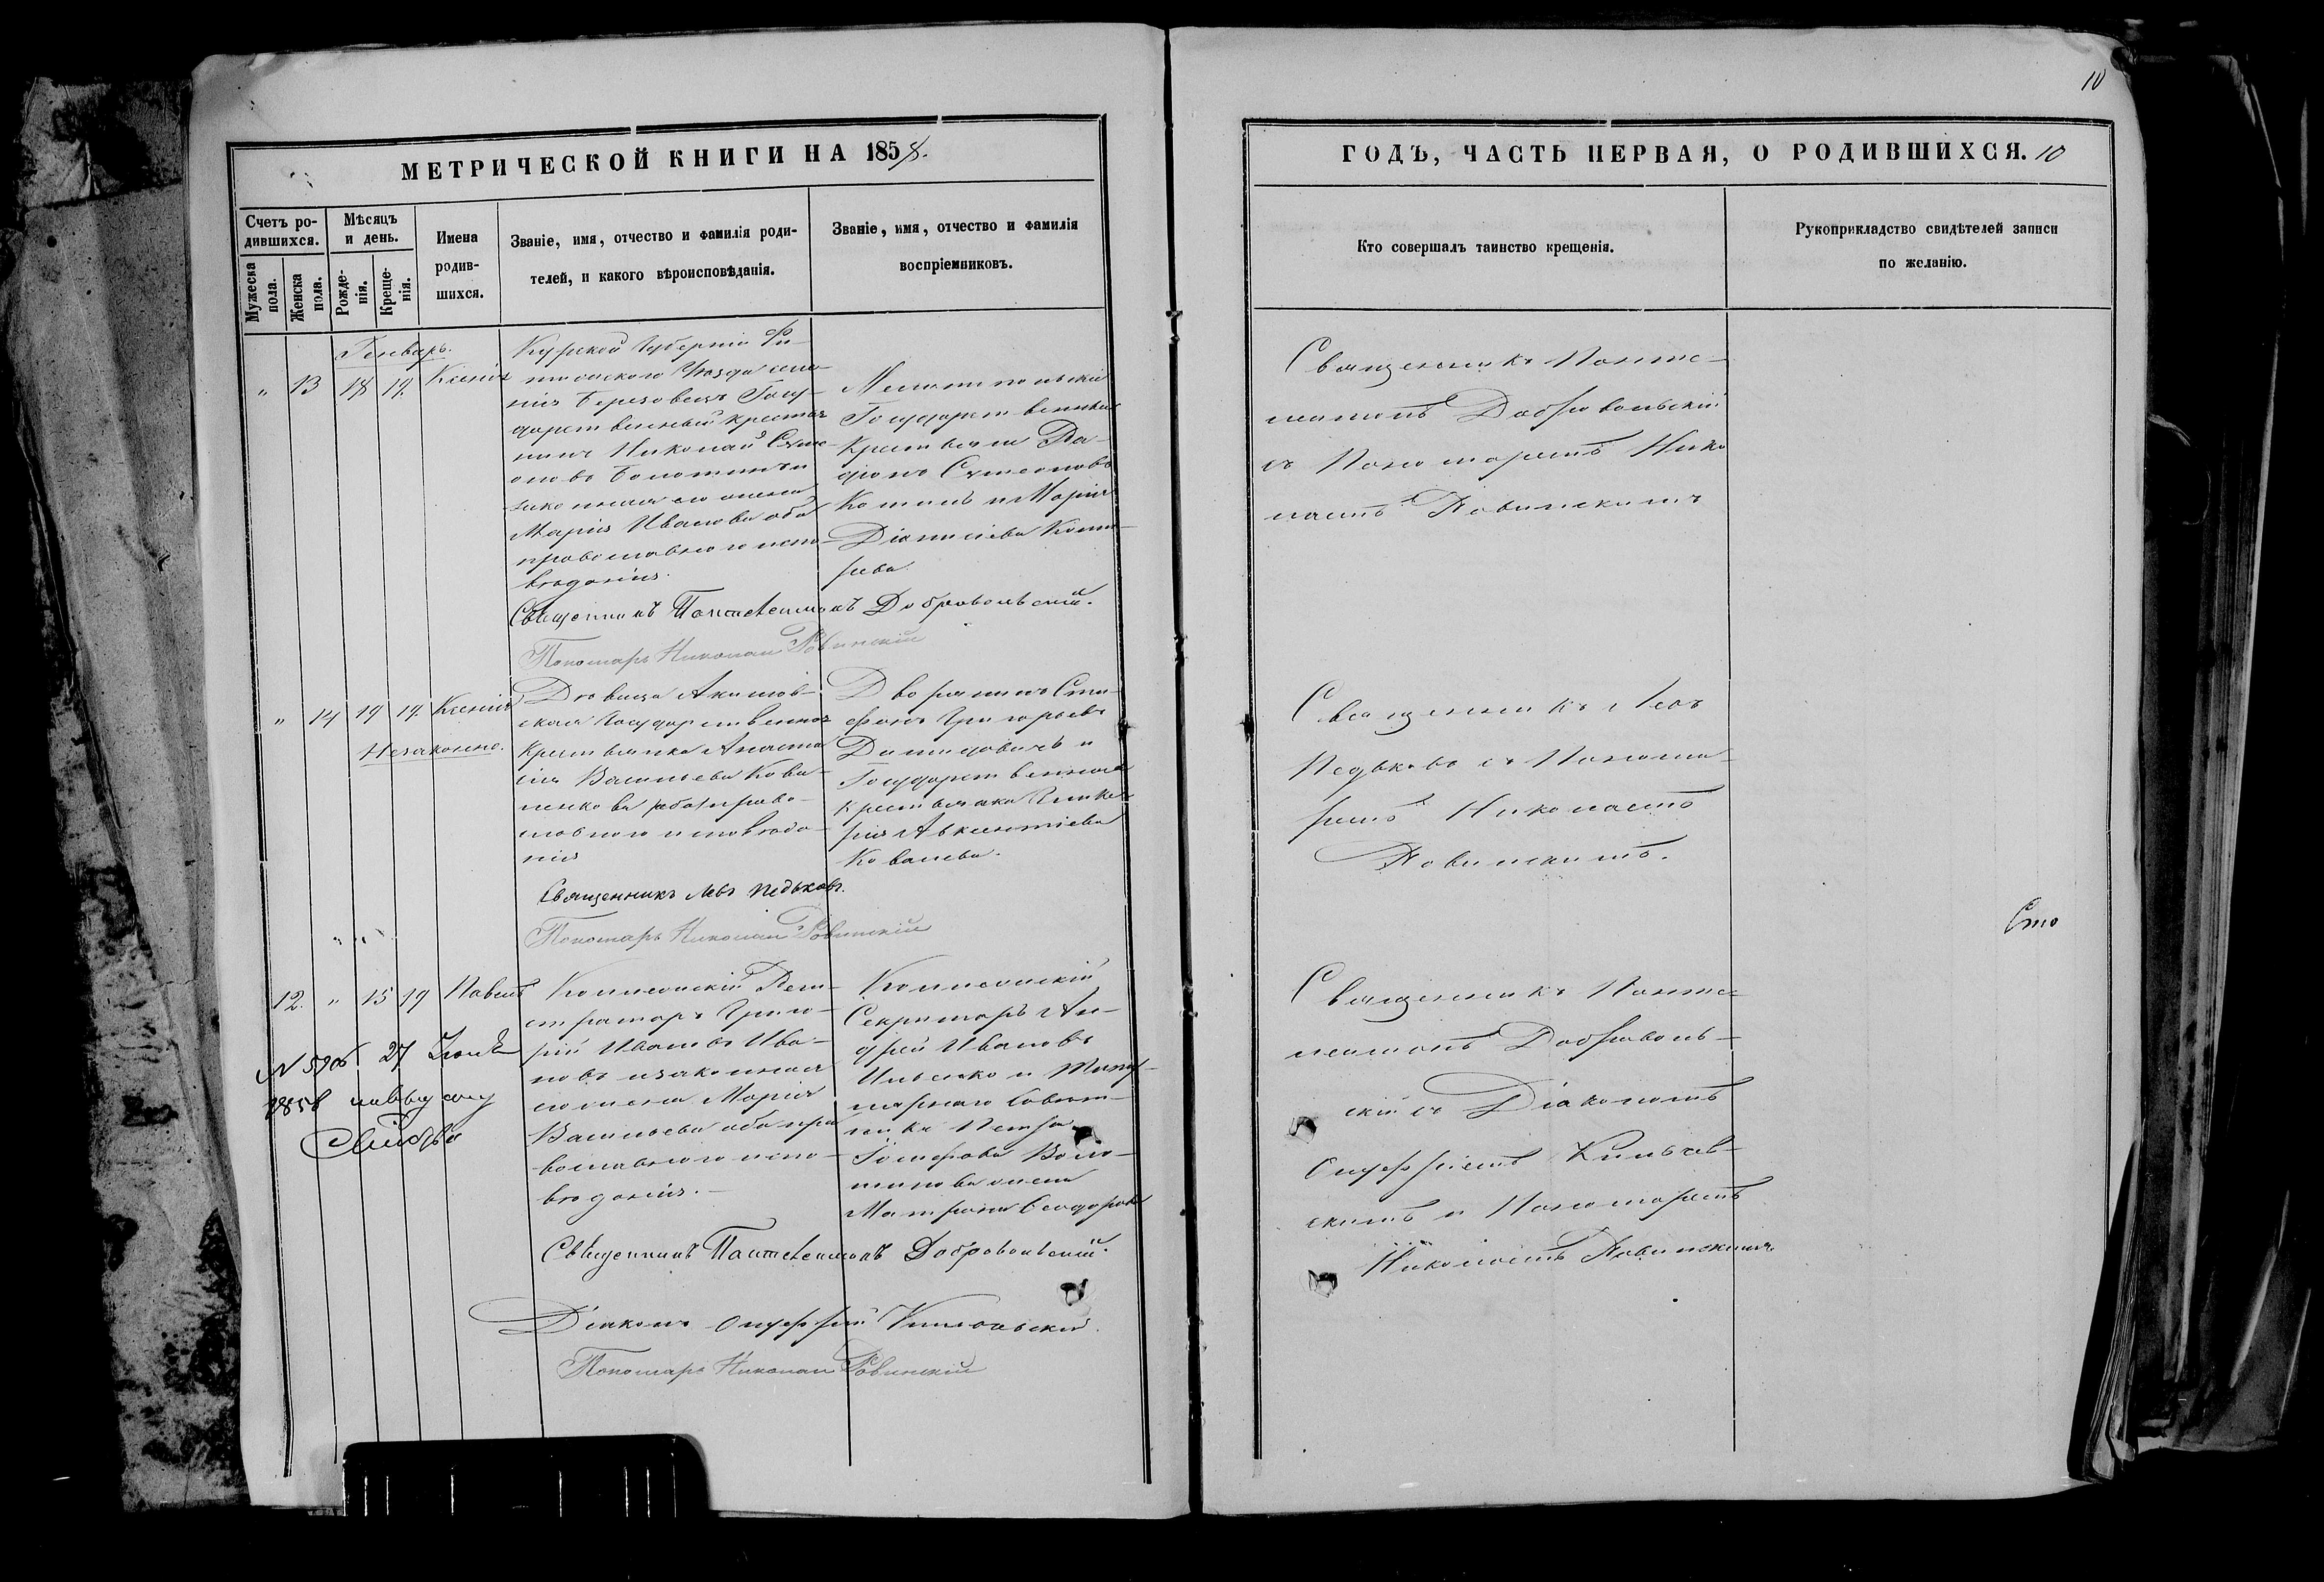 10
МЕТРИЧЕСКОЙ КНИГИ НА 1858.
ГОДЪ, ЧАСТЬ ПЕРВАЯ, О РОДИВШИХСЯ. 10
Счетъ ро-
дившихся.
Мужеска
пола.
Женска
пола.
Мѣсяцъ
и день.
Рожде-
нія.
Креще-
нія.
Имена
родив-
шихся.
Званіе, имя, отчество и фамилія роди-
телей, и какого вѣроисповѣданія.
Званіе, имя, отчество и фамилія
воспріемниковъ.
Кто совершалъ таинство крещенія.
Рукоприкладство свидѣтелей записи
по желанію.
Генварь.
" 13 18 19. Ксенія
Курской Губерніи
Уѣзда
Госу-
дарственный крестья
нинъ Николай Симе-
оновъ и
законная его жена
Марія Иванова оба
православнаго испо-
вѣданія.
Государственный
Крестьянинъ
Симеоновъ
и Марія
Діонисіева
рева
Священникъ Панте-
леимонъ Добровольскій
съ Пономаремъ Нико
лаемъ Ровинскимъ
Священникъ Пантелеимонъ Добровольскій.
Пономарь Николай Ровинскій
" 14 19 19. Ксенія
Незаконно.
Дѣвица Акимов-
ская Государственная
Крестьянка Анаста
сія Васильева Кова-
ленкова право-
славнаго исповѣда-
нія
Дворянинъ Сте-
фанъ Григорьевъ
Демидовичъ и
Государственная
крестьянка Глике-
рія Авксентіева
Ковалева.
Священникъ Левъ
Педьковъ съ Понома-
ремъ Николаемъ
Ровинскимъ.
Священникъ Левъ Педьковъ.
Пономарь Николай Ровинскій
Сто
12. " 15 19 Павелъ
Коллежскій Реги-
страторъ Григо-
рій Ивановъ Ива-
новъ и законная
его жена Марія
Васильева оба пра
вославнаго испо-
вѣданія.
Коллежскій
Секретарь Ан-
дрей Ивановъ
Ильенко и Титу-
лярнаго Совѣт-
ника Петра
Іосифова Воло-
шинова жена
Матрона Ѳеодорова
Священникъ Панте-
леимонъ Доброволь-
скій съ Діакономъ
Онуфріемъ
скимъ и Пономаремъ
Николаемъ Ровинскимъ
27 Іюля
1858
Свид-во
Священникъ Пантелеимонъ Добровольскій.
Діаконъ Онуфрій
Пономарь Николай Ровинскій